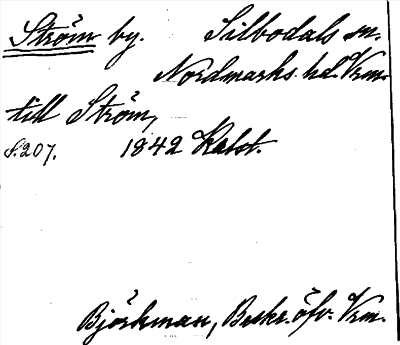 Ström by. Silbodals sn.
Nordmarks hd. Vrm.
till Ström,
S. 207. 1842 Kalst.
Björkman, Beskr. öfv. Vrm.